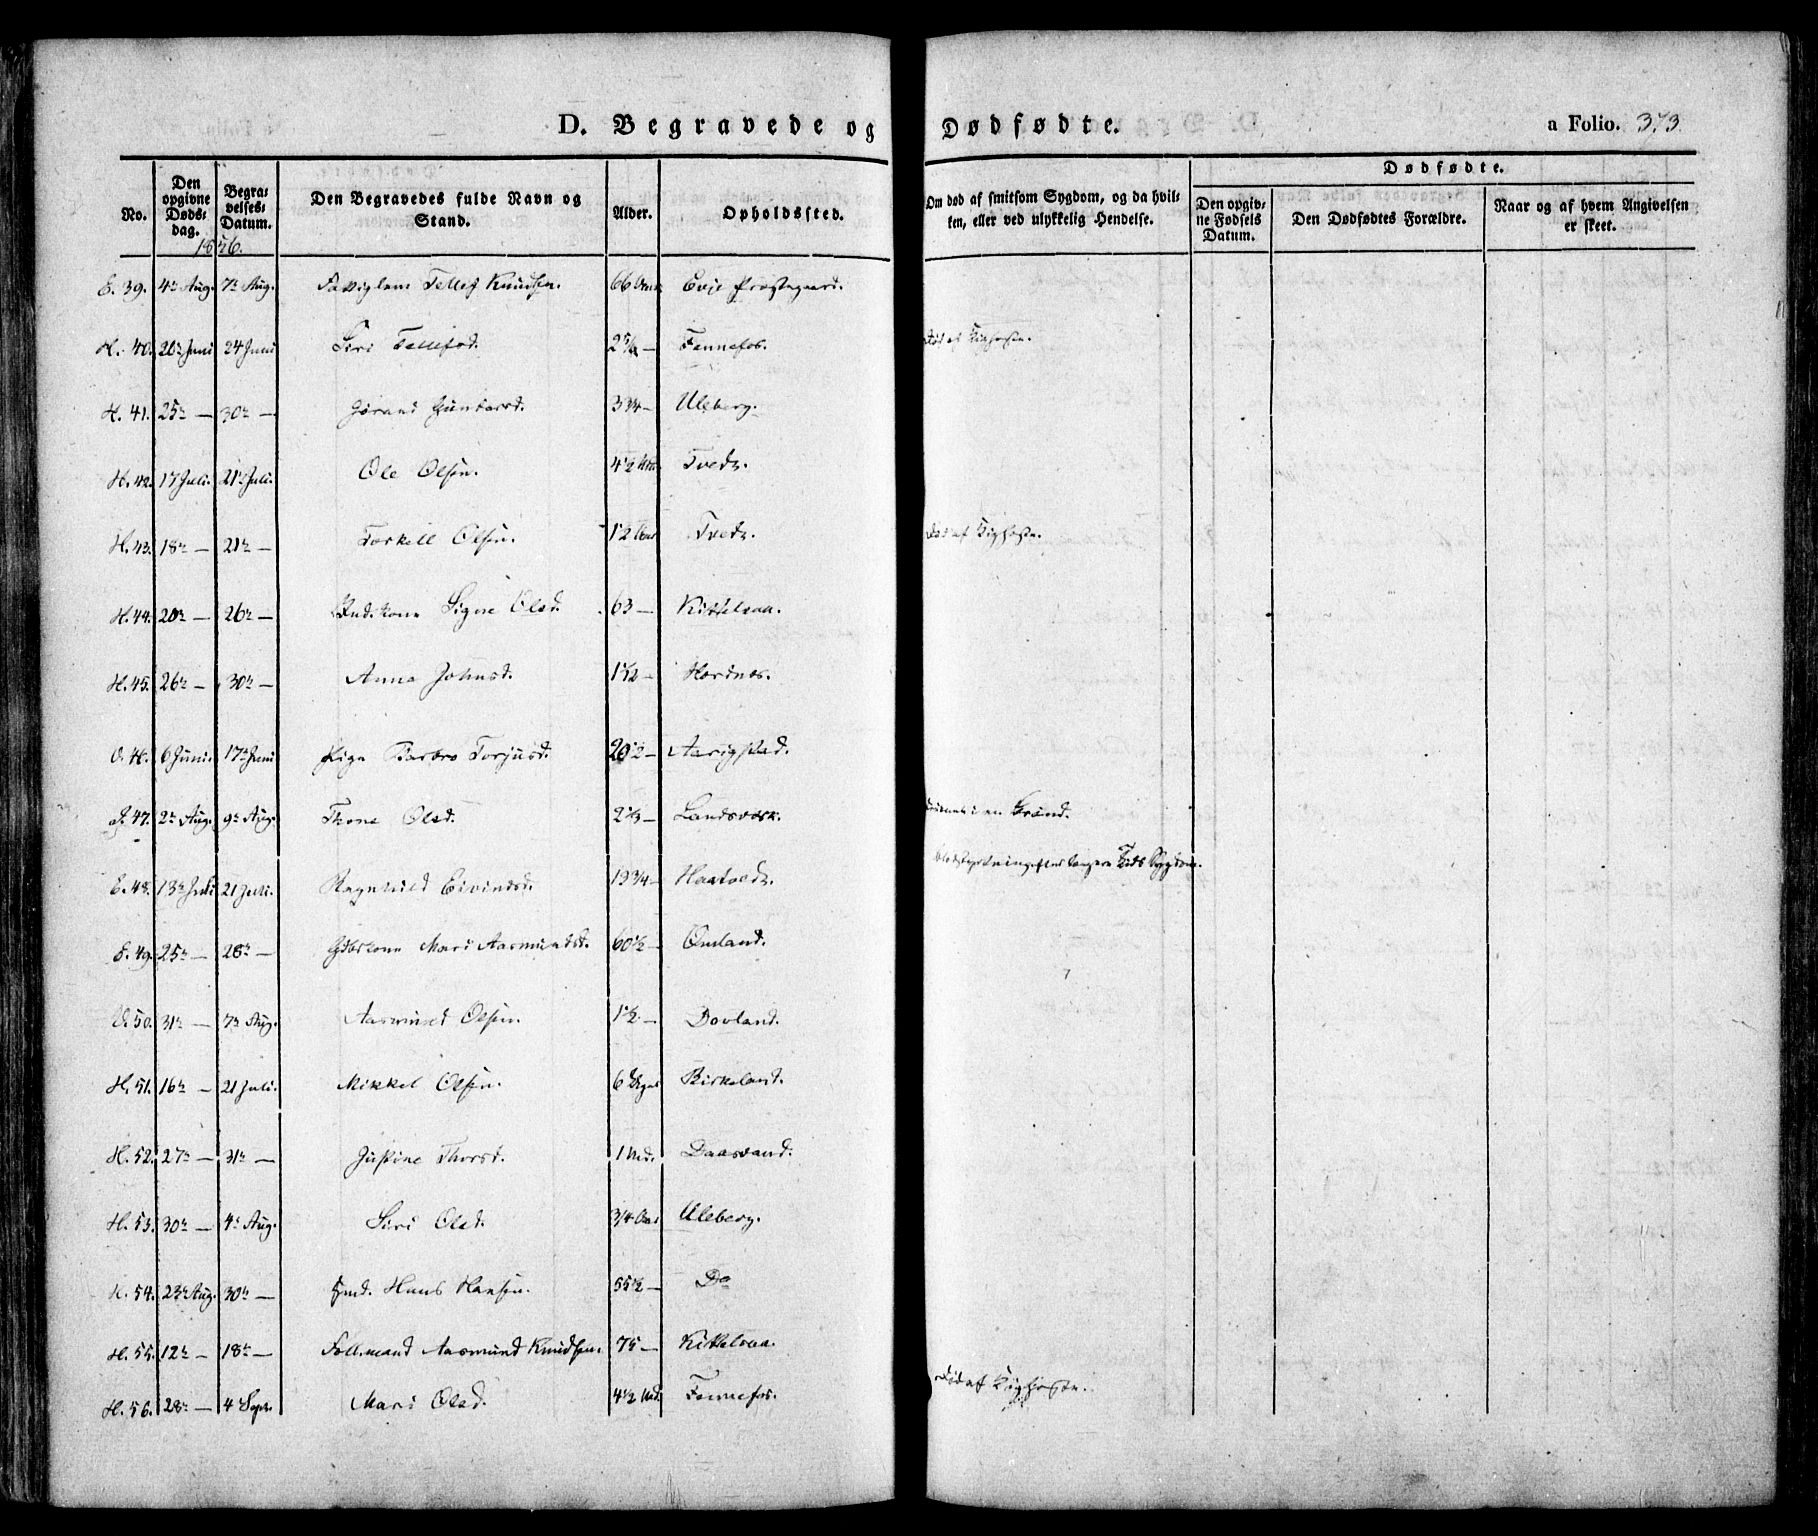 D. Begravede og Dødfødte.
a Folio. 373.
No.
Den opgivne Døds-dag.
Begra-velses-Datum.
Den Begravedes fulde Navn og Stand.
Alder.
Opholdssted.
Om død af smitsom Sygdom, og da hvil-ken, eller ved ulykkelig Hendelse.
Dødfødte.
Den opgiv-ne Fødsels Datum.
Den Dødfødtes Forældre.
Naar og af hvem Angivelsen er skeet.
1846.
E. 39. 4de Aug. 7de Aug. Tellef Knudsen. 66 Aar Evje Præstegaard.
H. 40. 20de Juni 24 Juni Siri Tellefsd. 2 Fennefos. Død af Kighoste.
H. 41. 25de — 30de — Jórand Gundersd. 3 3/4 — Uleberg.
H. 42. 17 Juli. 21de Juli. Ole Olsen. 4 1/2 Tvedt.
H. 43. 18de — 21de — Torkell Olsen. 1 1/2 Aar Tvedt. Død af Kighoste.
H. 44. 20de — 26de — Signe Olsd. 63 — Kittelsaa.
H. 45. 26de — 30de — Anna Johnsd. 1 1/2 — Hordnes.
O. 46. 6 Juni. 17de Juni Pige Barbro Torjusd. 20 1/2 — Aarigstad.
I. 47. 2de Aug. 9de Aug. Thone Olsd. 2 1/3 — Landsværk. i en Brønd.
E. 48. 13de Juli 21 Juli. Ragnhild Eivindsd. 19 3/4 — Haatvedt. Blodstyrtning efter længere Tids Sygdom.
E. 49. 25de — 28de — Gdbrkone Mari Aasmundsd. 60 1/2 — Omland.
O. 50. 31te — 7de Aug. Aasmund Olsen. 1 1/2 — Dovland.
H. 51. 16de — 21 Juli. Mikkel Olsen. 6 Uger Birkeland.
H. 52. 27de — 31te — Justine Thorsd. 1 Md. Daasvand.
H. 53. 30de — 4de Aug. Siri Olsd. 3/4 Aar Uleberg.
H. 54. 23de Aug. 30de — Hans Hansen. 55 1/2 — Do
H. 55. 12te — 18de — Føll.mand Aasmund Knudsen. 75 — Kittelsaa.
H. 56. 28de — 4de Sept. Mari Olsd. 4 1/2 Md. Fennefos. Død af Kighoste.